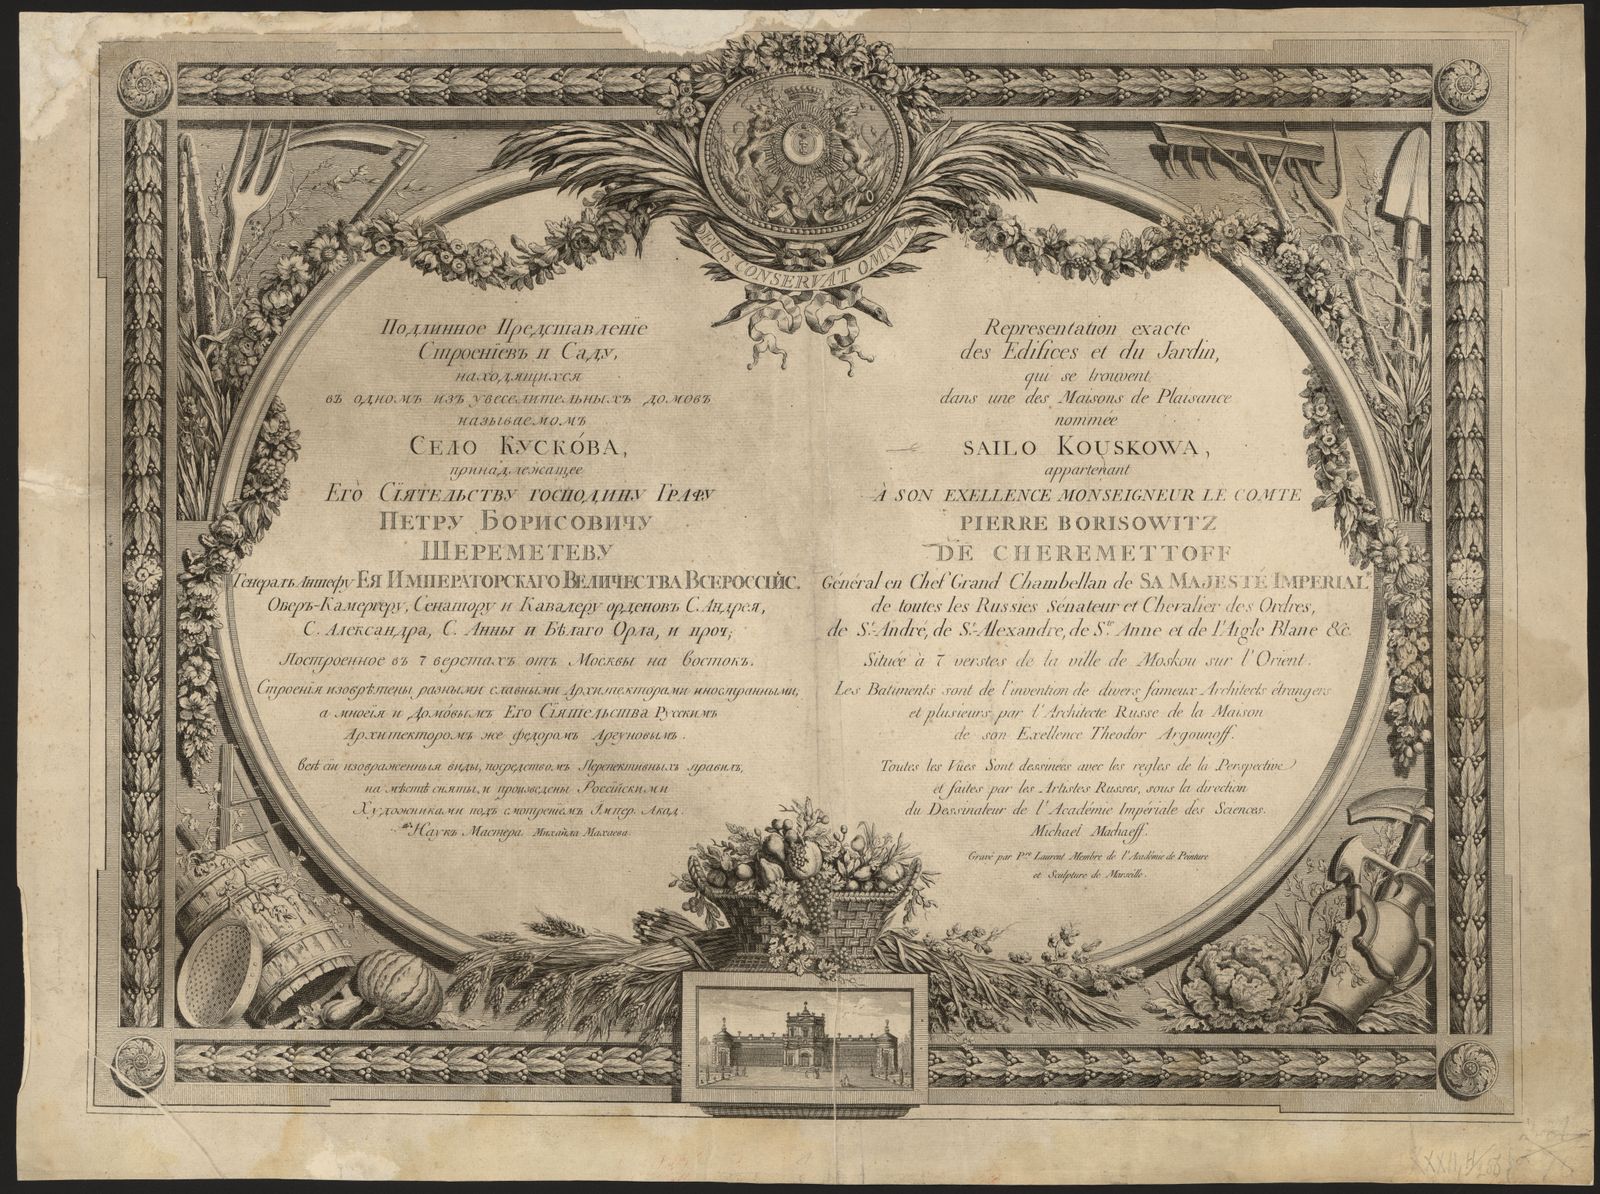 DEUS CONSERVAT OMNIA
Подлинное Представленїе
Строенїевъ и Саду,
находящихся
въ одномъ изъ увеселительныхъ домовъ
называемомъ
Село Кускóва,
принадлежащее
Его Сїятельству господину Графу
Петру Борисовичу
Шереметеву
Генералъ Аншефу Ея Императорскаго Величества Всероссїйс.
Оберъ-Камергеру, Сенатору и Кавалеру орденовъ С. Андрея,
С. Александра, С. Анны и Бѣлаго Орла, и проч;
Построенное въ 7 верстахъ отъ Москвы на востокъ.
Строенїя изобрѣтены разными славными Архитекторами иностранными,
а многїя и Домóвымъ Его Сїятельства Русскимъ
Архитекторомъ же федоромъ Аргуновымъ.
всѣ сїи изображенныя виды, посредствомъ Перспективныхъ правилъ,
на мѣстѣ сняты, и произведены Россїйскими
Художниками подъ смотренїемъ Импер. Акад.
Наукъ Мастера Михайла Махаева
Representation exacte
des Edifices et du Jardin,
qui se trouvent
dans une des Maisons de Plaisance
nommée
SAILO KOUSKOWA,
appartenant
À SON EXELLENCE MONSEIGNEUR LE COMTE
PIERRE BORISOWITZ
DE CHEREMETTOFF
Général en Chef Grand Chambellan de SA MAJESTÉ IMPERIAL.e
de toutes les Russies Sénateur et Chevalier des Ordres,
de St. André, de St. Alexandre, de Ste Anne et de l'Aigle Blanc &c.
Située à 7 verstes de la ville de Moskou sur l'Orient.
Les Batiments sont de l'invention de divers fameux Architects étrangers
et plusieurs par l'Architecte Russe de la Maison
de son Exellence Theodor Argounoff.
Toutes les Vües Sont dessinées avec les regles de la Perspective
et faites par les Artistes Russes, sous la direction
du Dessinateur de l'Académie Impériale des Sciences.
Michael Machaeff.
Gravé par Pre Laurent Membre de l'Académie de Peinture
et Sculpture de Marseille.